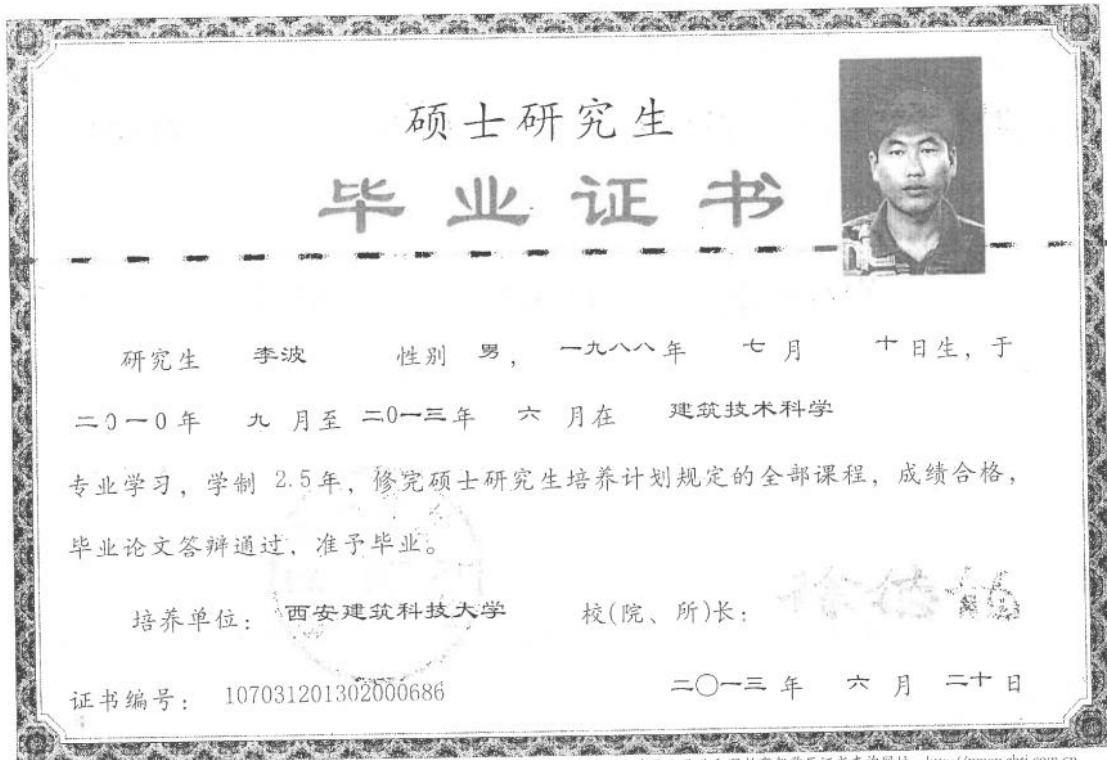 硕士研究生
毕业证书
研究生 李波 性别 男, 一九八八年 七月 十日生, 于
二0一0年 九月至 二0一三年 六月在 建筑技术科学
专业学习, 学制 2.5年, 修完硕士研究生培养计划规定的全部课程, 成绩合格,
毕业论文答辩通过, 准予毕业。
培养单位: 西安建筑科技大学 校(院、所)长:
证书编号: 107031201302000686 二〇一三年 六月 二十日
查询网址: http://www.chsi.com.cn